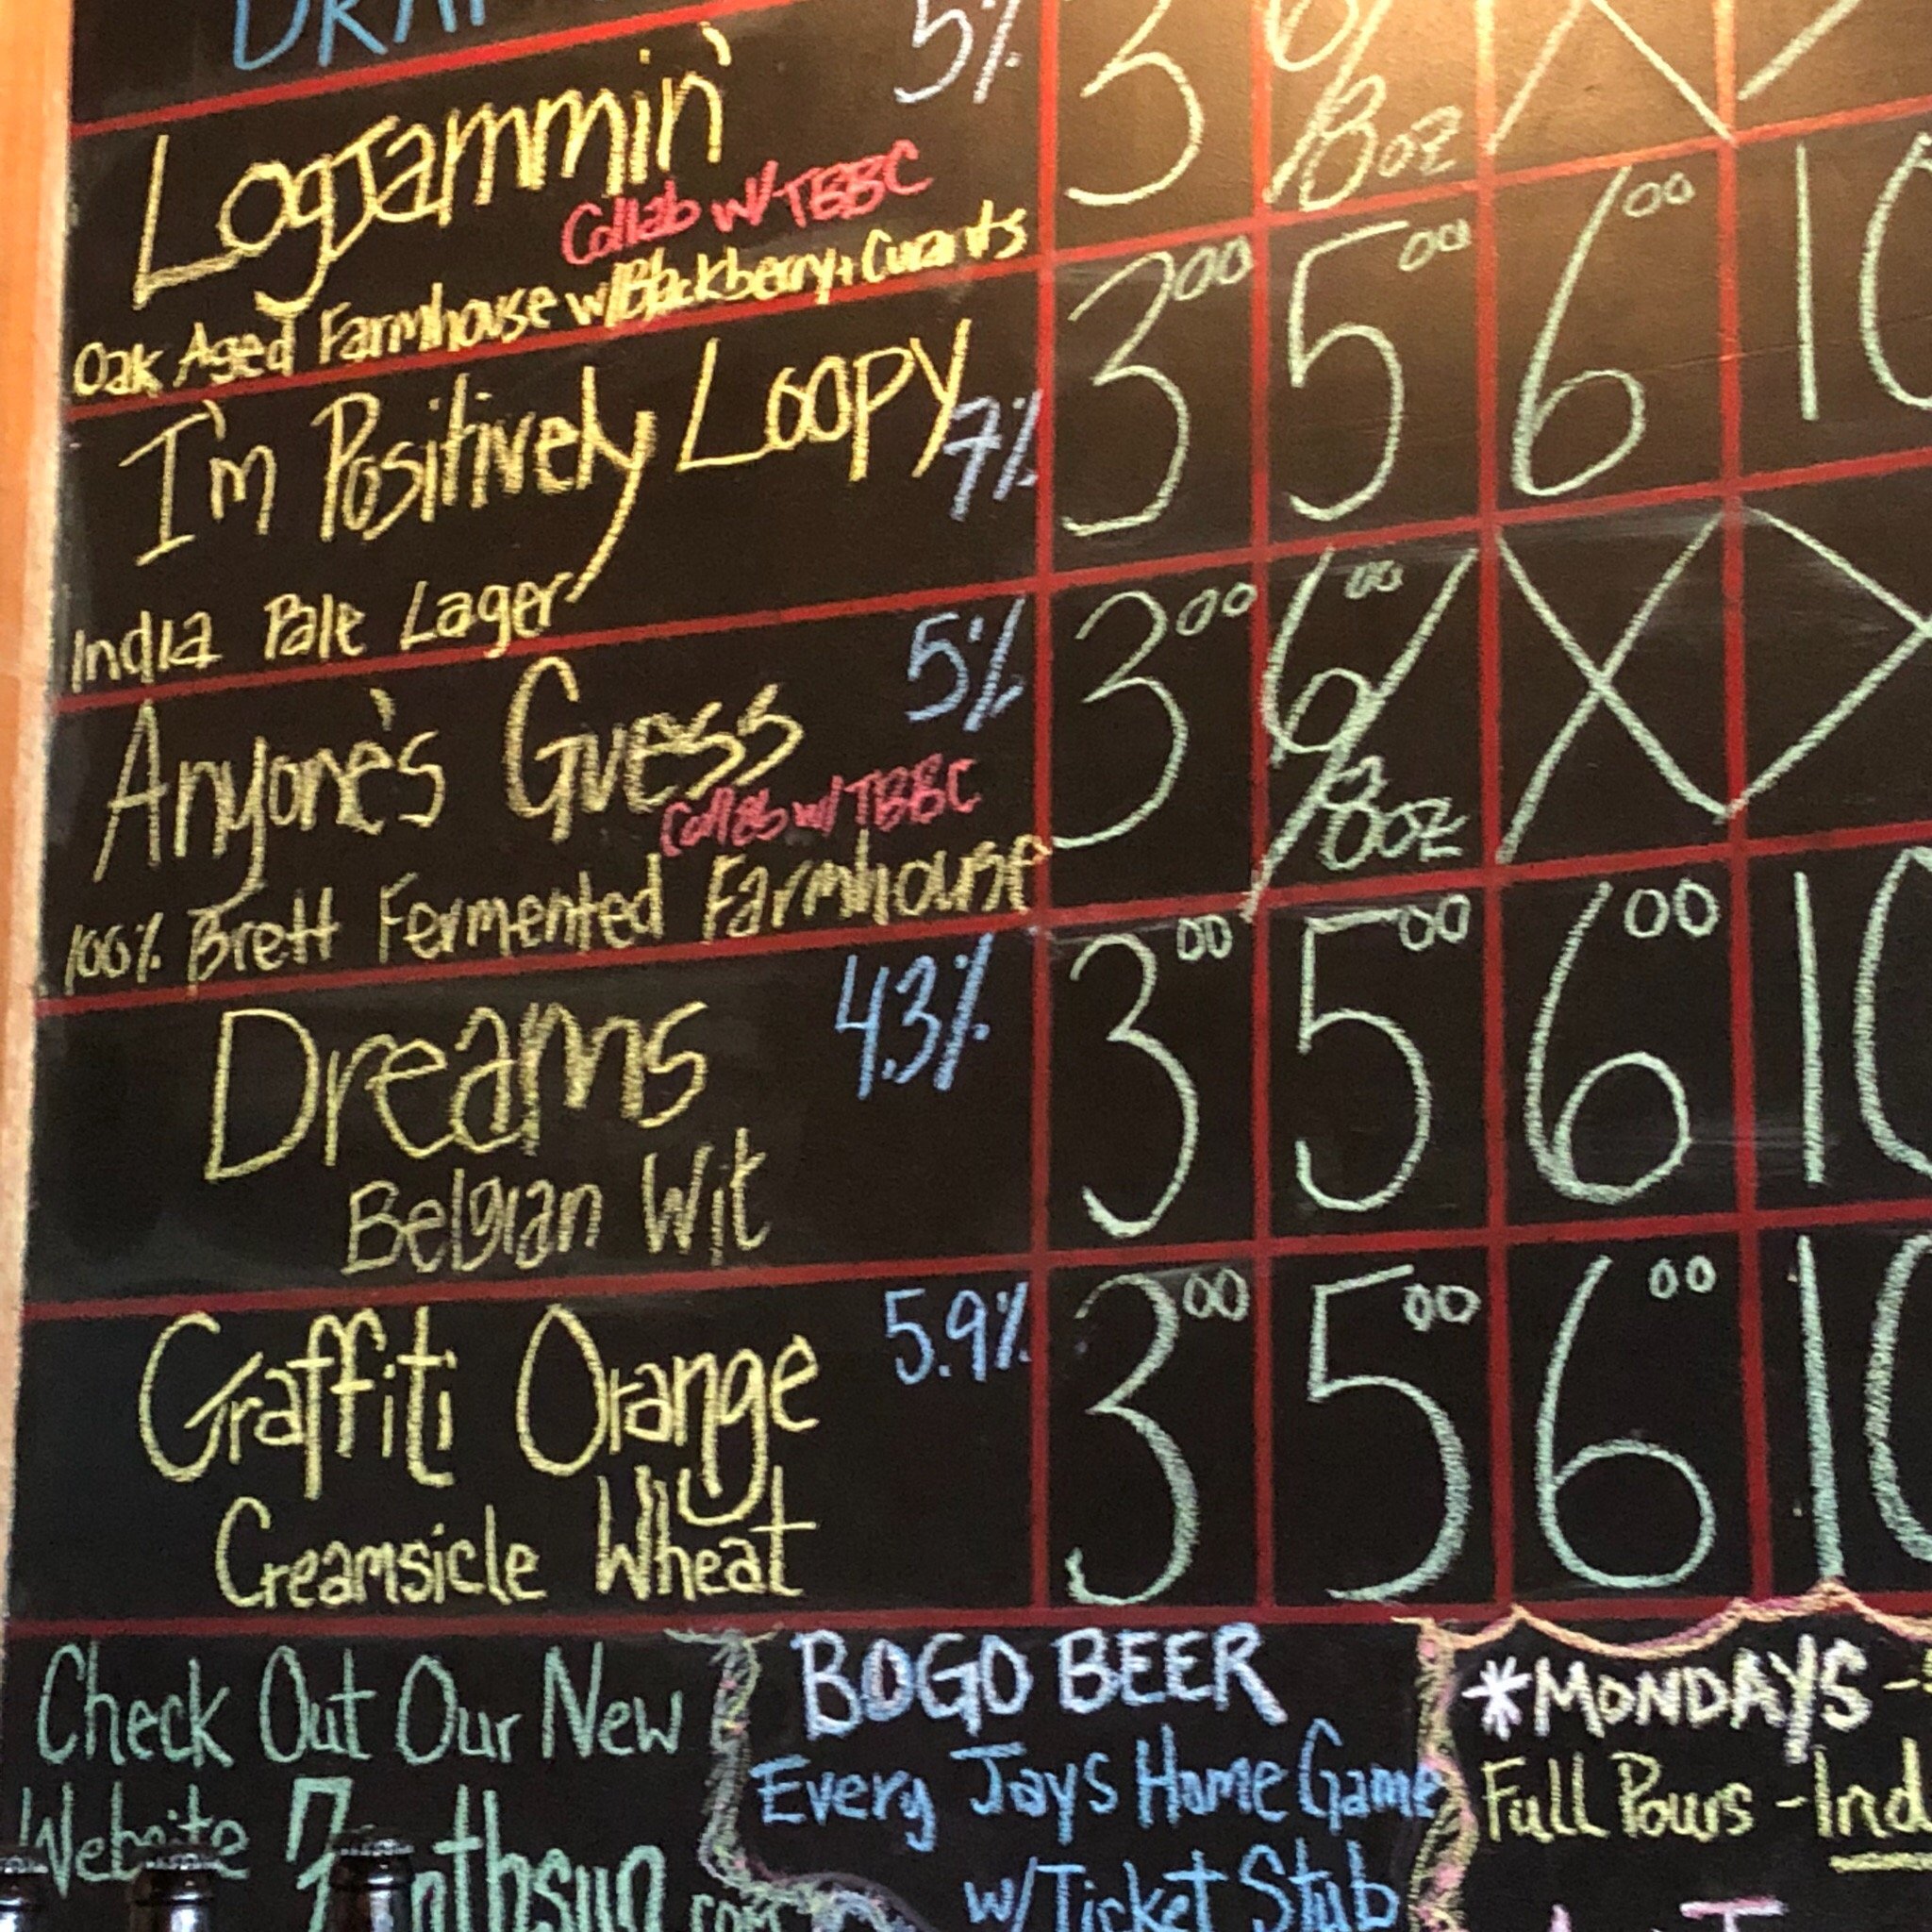 Logjammin' 5% 3 6/8oz
Collab w/ TBBC
Oak Aged Farmhouse w/Blackberry + Curants
I'm Positively Loopy 7% 3 00 5 00 6 00 10
India Pale Lager
Anyone's Guess 5% 3 00 6 00/8oz
Collab w/ TBBC
100% Brett Fermented Farmhouse
Dreams 4.3% 3 00 5 00 6 00 10
Belgian Wit
Graffiti Orange 5.9% 3 00 5 00 6 00 10
Creamsicle Wheat
Check Out Our New
Website 7venthsun.com
BOGO BEER
Every Jays Home Game
w/Ticket Stub
*MONDAYS -
Full Pours - Ind